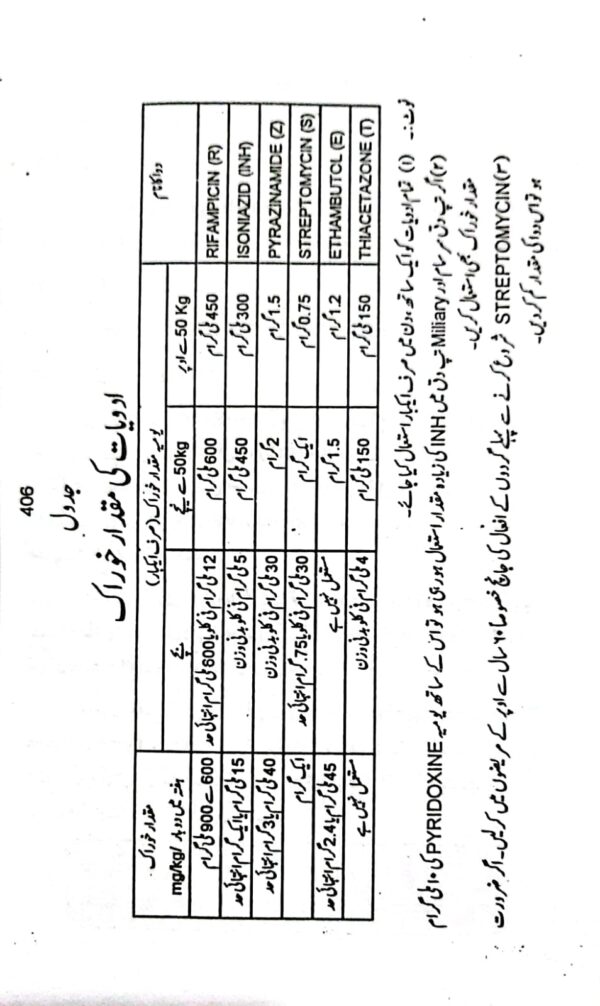 406
جدول
ادویات کی مقدار خوراک
دوا کا نام | یومیہ مقدار خوراک (صرف ایکبار) | مقدار خوراک
50 Kg سے اوپر | 50kg سے نیچے | بچے | ہفتے میں دو بار /mg/kg
RIFAMPICIN (R) | 450 ملی گرام | 600 ملی گرام | 12 ملی گرام فی کلو یا 600 ملی گرام انتہائی حد | 600 سے 900 ملی گرام
ISONIAZID (INH) | 300 ملی گرام | 450 ملی گرام | 5 ملی گرام فی کلو بدنی وزن | 15 ملی گرام یا ایک گرام انتہائی حد
PYRAZINAMIDE (Z) | 1.5 گرام | 2 گرام | 30 ملی گرام فی کلو بدنی وزن | 40 ملی گرام یا 3 گرام انتہائی حد
STREPTOMYCIN (S) | 0.75 گرام | ایک گرام | 30 ملی گرام فی کلو یا 75. گرام انتہائی حد | ایک گرام
ETHAMBUTCL (E) | 1.2 گرام | 1.5 گرام | مستعمل نہیں ہے | 45 ملی گرام یا 2.4 گرام انتہائی حد
THIACETAZONE (T) | 150 ملی گرام | 150 ملی گرام | 4 ملی گرام فی کلو بدنی وزن | مستعمل نہیں ہے
نوٹ:۔ (۱) تمام ادویات کو ایک ساتھ دن میں صرف ایکبار استعمال کیا جائے۔
(۲) اگر تپ دق سرسام اور Miliary تپ دق میں INH کی زیادہ مقدار استعمال ہو رہی ہو تو اس کے ساتھ یومیہ PYRIDOXINE کی ۱۰ ملی گرام
مقدار خوراک بھی استعمال کریں۔
(۳) STREPTOMYCIN شروع کرنے سے پہلے گردوں کے افعال کی جانچ خصوصا ۶۰ سال سے اوپر کے مریضوں میں کر لیں۔ اگر ضرورت
ہو تو اس دوا کی مقدار کم کر دیں۔